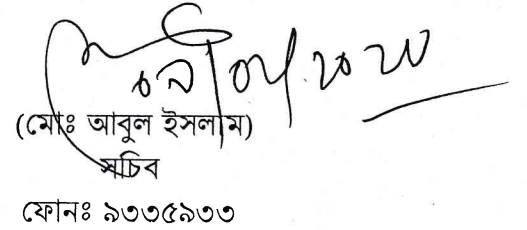 (মোঃ আবুল ইসলাম)
সচিব
ফোনঃ ৯৩৩৫৯৩৩